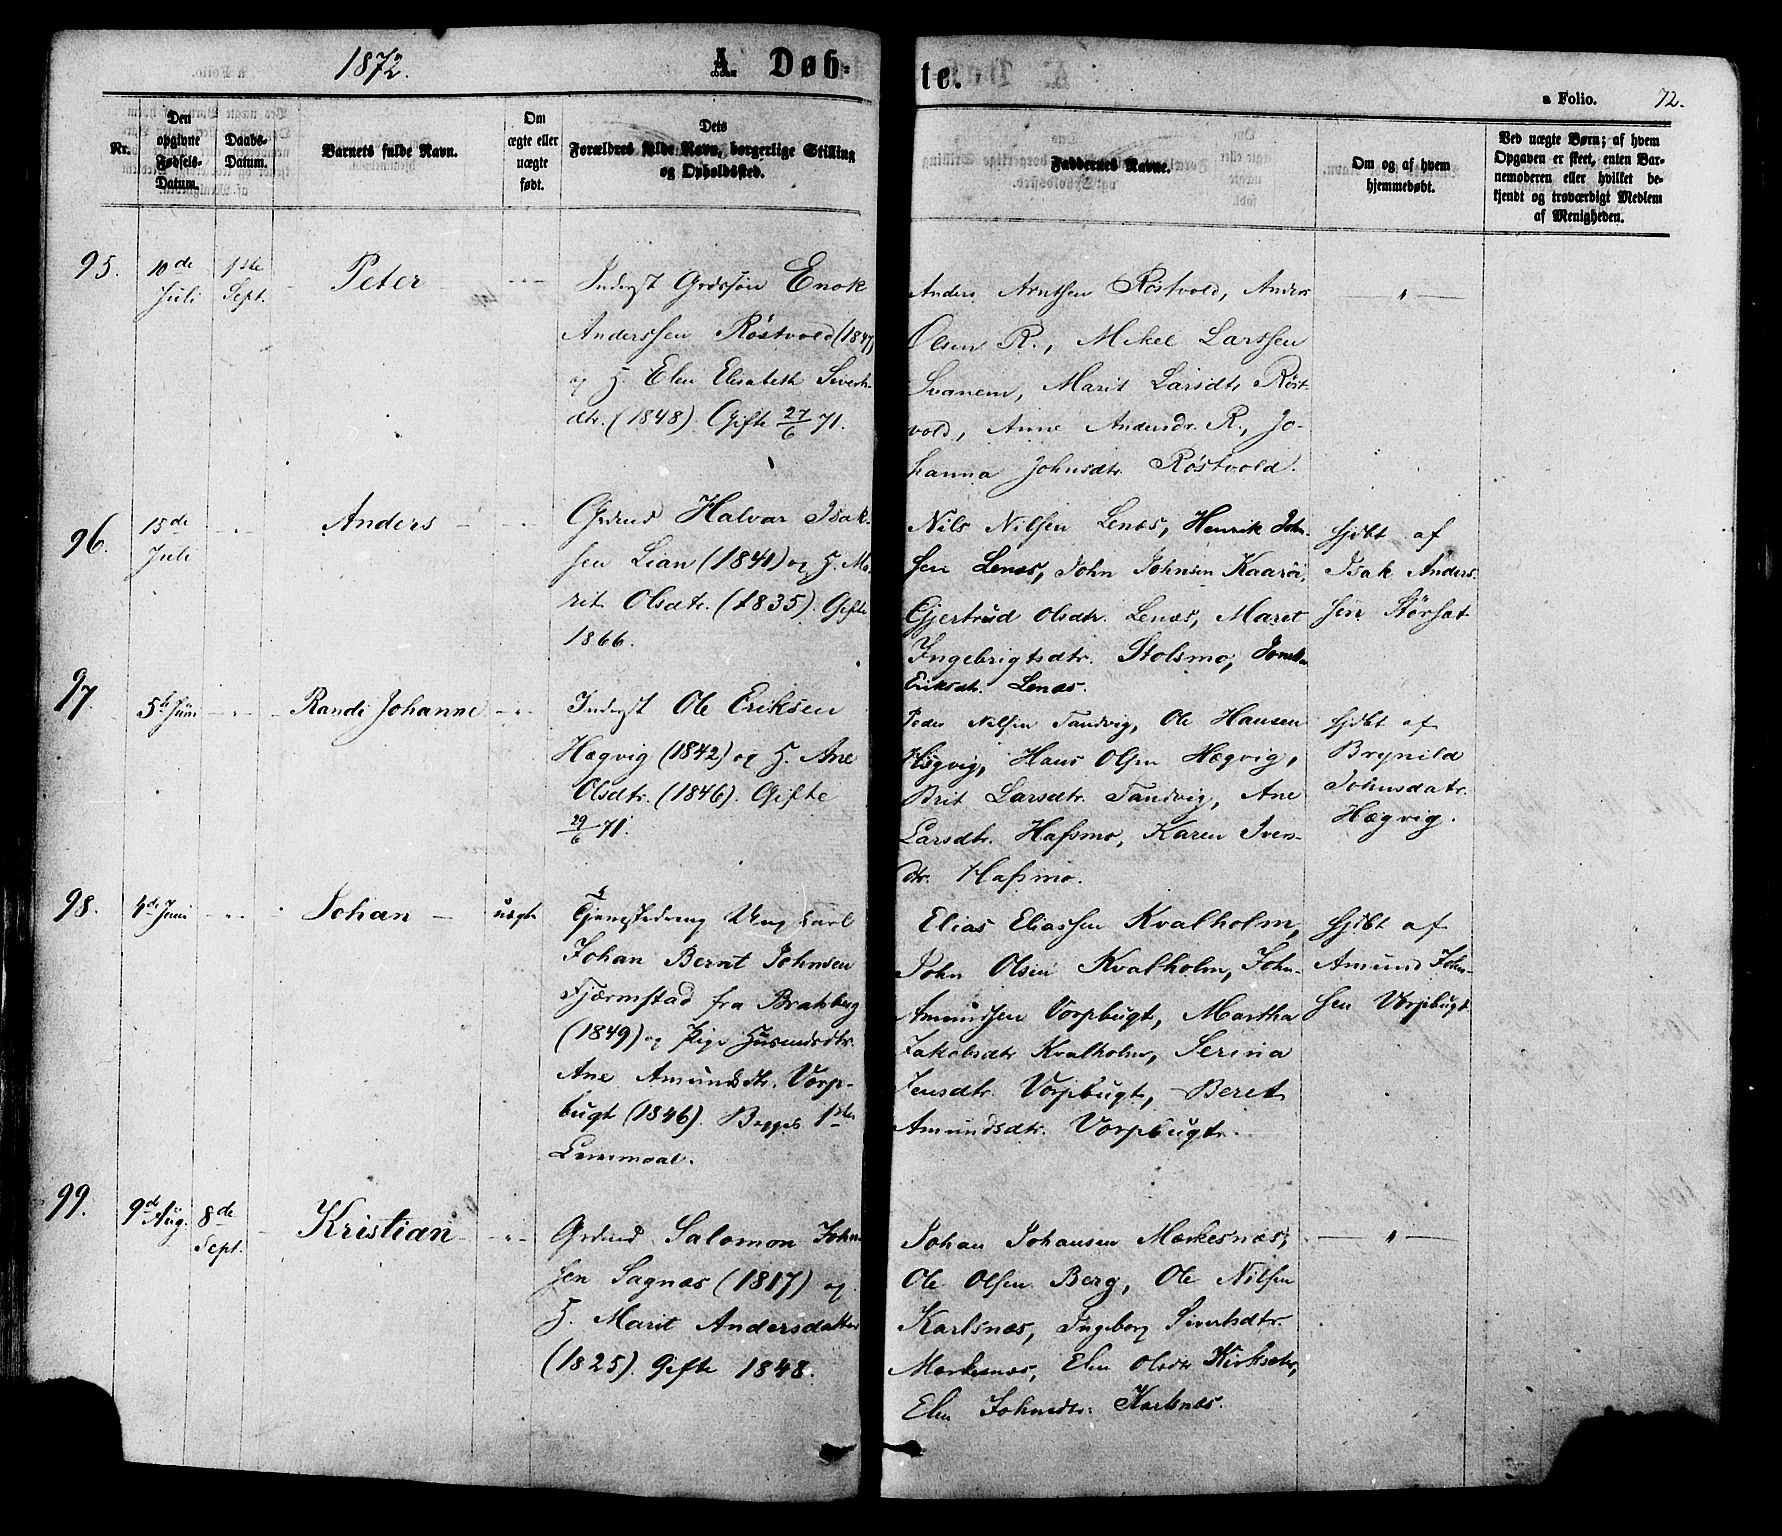 1872.
A Døb-
te.
a Folio. 72.
Nr.
Den
opgivne
Fødsels-
Datum.
Daabs-
Datum.
Barnets fulde Navn.
Om
ægte eller
uægte
født.
Dets
Forældres fulde Navn, borgerlige Stilling
og Opholdssted.
Faddernes Navne.
Om og af hvem
hjemmedøbt.
Ved uægte Børn; af hvem
Opgaven er skeet, enten Bar-
nemoderen eller hvilket be-
kjendt og troværdigt Medlem
af Menigheden.
95.
10de
Juli
1ste
Sept.
Peter
Inderst Grdssøn Enok
Anderssen Røstvold (1847)
og H. Elen Elisabeth Siverts-
dtr. (1848) Gifte 27/6 71.
Anders Arntsen Røstvold, Anders
Olsen R., Mikel Larssen
Svanem, Marit Larsdtr Røst-
vold, Anne Andersdr. R., Jo-
hanna Johnsdtr. Røstvold.
96.
15de
Juli
Anders
Grdmd Halvar Isak-
sen Lian (1841) og H. Ma-
rit Olsdtr. (1835). Gifte
1866.
Nils Nilsen Lenæs, Henrik John-
sen Lenæs, John Johnsen Kaarøi,
Gjertrud Olsdtr. Lenæs, Maret
Ingebrigtsdtr. Stolsmo,
Eriksdt. Lenæs.
hjdbt af
Isak Anders-
sen Størsæt
97.
5te Juni
Randi Johanne
Inderst Ole Eriksen
Hægvig (1842) og H. Ane
Olsdtr. (1846). Gifte
29/6 71.
Peder Nilsen Tandvig, Ole Hansen
Hægvig, Hans Olsen Hægvig,
Brit Larsdtr. Tandvig, Ane
Larsdtr. Hafsmo, Karen Ivers-
dtr. Hafsmo.
hjdbt af
Brynild
Johnsdatr.
Hægvig.
98.
4de Juni
Johan
uægte
Tjenestedreng Ung karl
Johan Bernt Johnsen
Fjærmstad fra Bratsberg
(1849) og Pige Husmdsdtr.
Ane Amundsdtr. Vorp-
bugt (1846). Begges 1ste
Leiermaal.
Elias Eliassen Kvalholm,
John Olsen Kvalholm, John
Amundsen Vorpbugt, Martha
Jakobsdtr Kvalholm, Serina
Jensdtr. Vorpbugt, Beret
Amundsdtr. Vorpbugt.
hjdbt af
Amund John-
sen Vorpbugt
99.
9de Aug.
8de
Sept.
Kristian
Grdmd Salomon John-
sen Sagnæs (1817) og
H. Marit Andersdatter
(1825). Gifte 1848.
Johan Johansen Mærkesnæs,
Ole Olsen Berg, Ole Nilsen
Karlsnæs, Ingeborg Sivertsdtr.
Mærkesnæs, Elen Olsdtr Kirksæter,
Elen Johnsdtr. Karlsnæs.